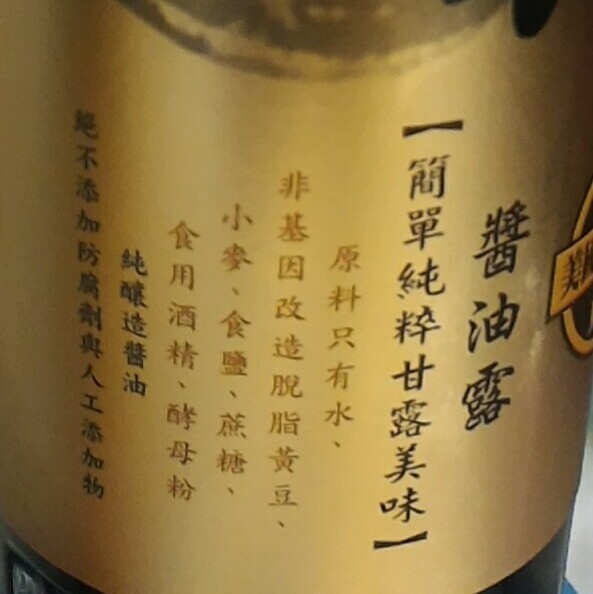 醬油露
【簡單純粹甘露美味】
原料只有水、
非基因改造脫脂黃豆、
小麥、食鹽、蔗糖、
食用酒精、酵母粉
純釀造醬油
絕不添加防腐劑與人工添加物
美